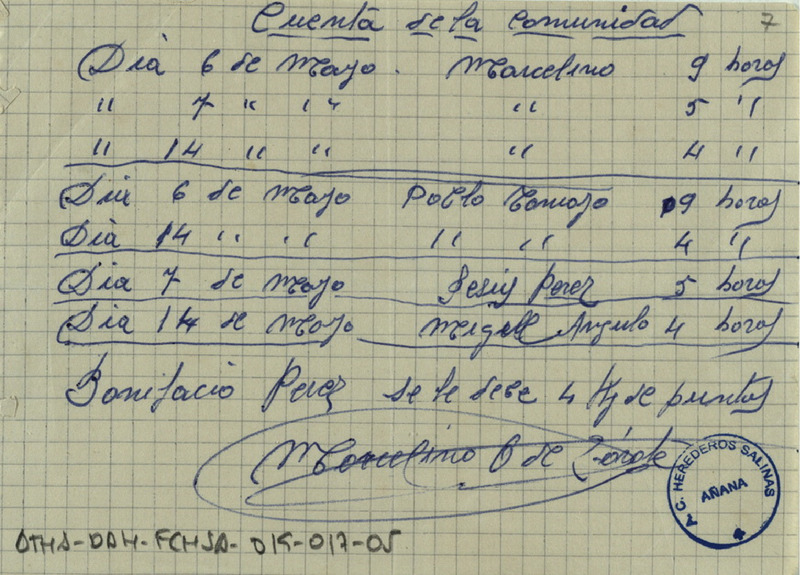 Cuenta de la Comunidad 7
Dia 6 de Mayo. Marcelino 9 horas
" 7 " " " 5 "
" 14 " " " 4 "
Dia 6 de Mayo Pablo 9 horas
Dia 14 " " " " 4 "
Dia 7 de Mayo Jesus Perez 5 horas
Dia 14 de Mayo Migell Angulo 4 horas
Bonifacio Perez se le debe 4 Kg de puntas
Marcelino O de Zárate
A.C. HEREDEROS SALINAS
AÑANA
OTHA-DAH-FCHSA-015-017-05